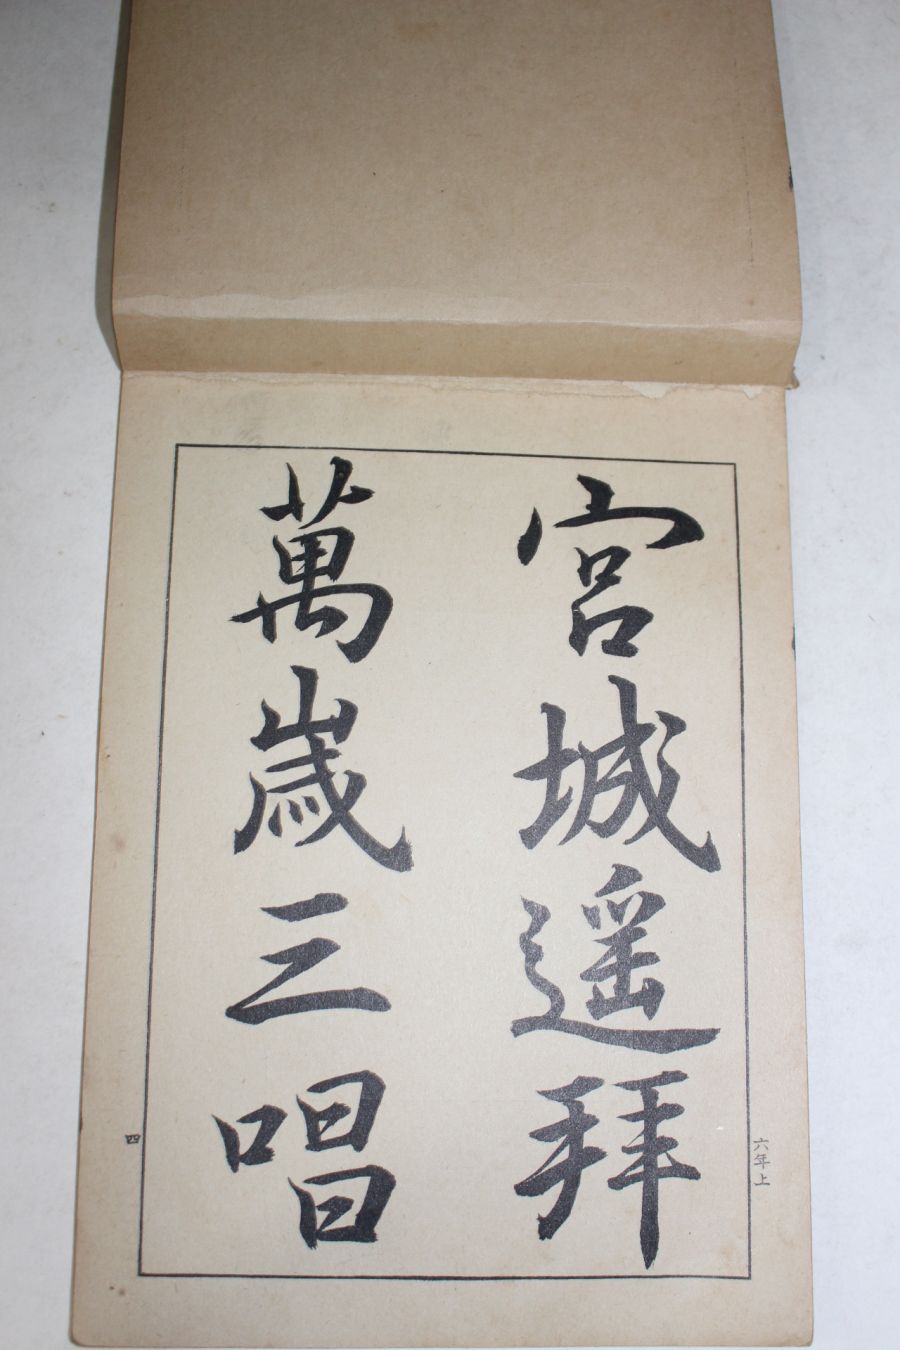 宮城遥拜
萬歳三唱
六年上
四